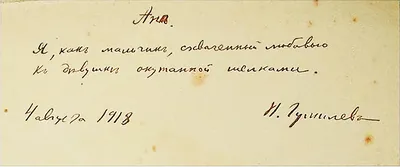 Ана.
Я, какъ мальчикъ, схваченный любовью
къ дѣвушкѣ окутанной шелками.
4 августа 1918
Н. Гумилевъ